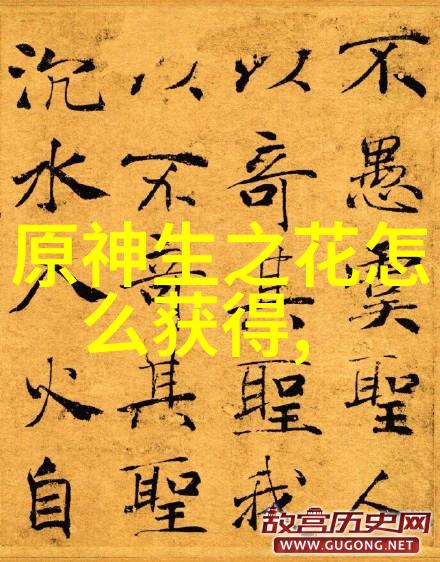 不愚矣聖人
以奇其聖我
以不奇其聖
沉水入火自
原神生之花怎
么获得,
故宫历史网
WWW.GUGONG.NET